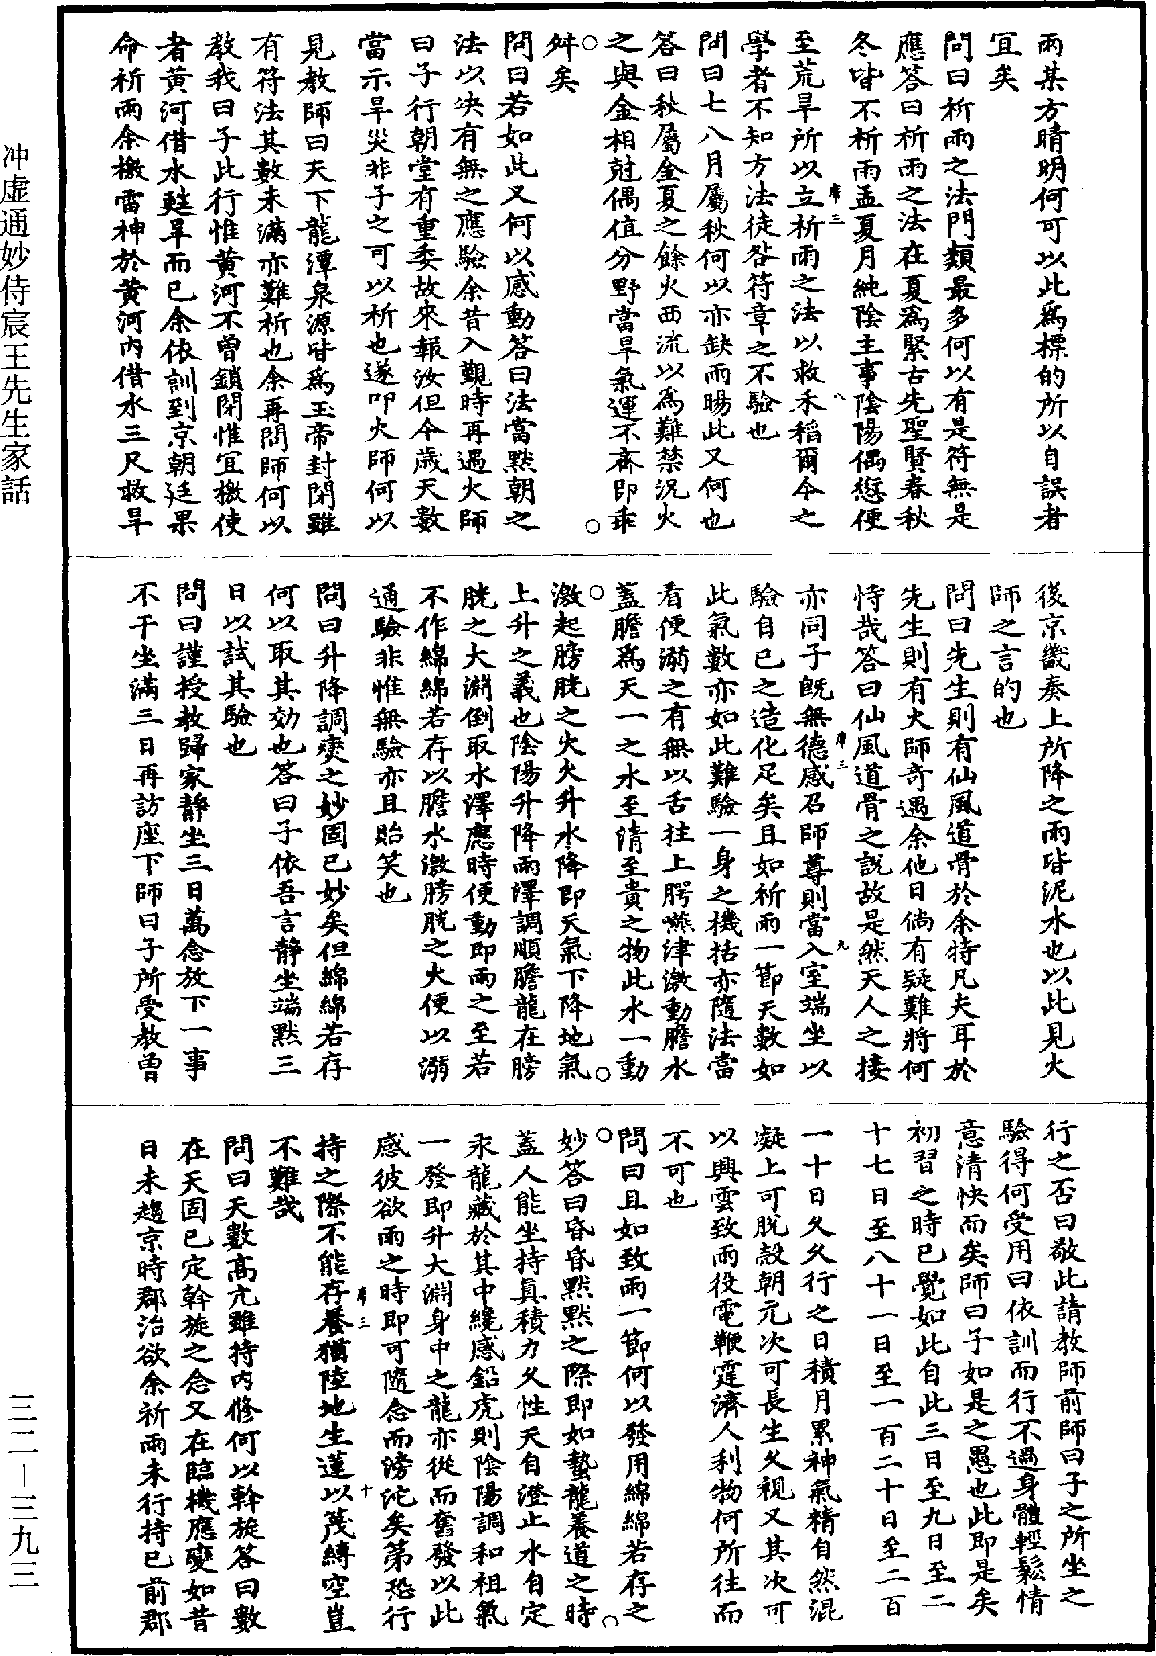 雨某方晴明何可以此為標的所以自誤者
宜矣
問曰祈雨之法門類最多何以有是符無是
應答曰祈雨之法在夏為緊古先聖賢春秋
冬皆不祈雨孟夏月純陰主事陰陽偶愆便
至荒旱所以立祈雨之法以救禾稻爾今之
學者不知方法徒咎符章之不驗也
問曰七八月屬秋何以亦缺雨暘此又何也
答曰秋屬金夏之餘火西流以為難禁況火
之與金相尅偶值分野當旱氣運不齊即乖
舛矣
問曰若如此又何以感動答曰法當默朝之
法以決有無之應驗余昔入覲時再遇火師
曰子行朝堂有重委故來報汝但今歲天數
當示旱災非子之可以祈也遂叩火師何以
見教師曰天下龍潭泉源皆為玉帝封閉雖
有符法其數未滿亦難祈也余再問師何以
教我曰子此行惟黃河不曾鎖閉惟宜檄使
者黃河借水甦旱而已余依訓到京朝廷果
命祈雨余檄雷神於黃河內借水三尺救旱
後京畿奏上所降之雨皆泥水也以此見火
師之言的也
問曰先生則有仙風道骨於余特凡夫耳於
先生則有大師奇遇余他日倘有疑難將何
恃哉答曰仙風道骨之說故是然天人之接
亦同子既無德感召師尊則當入室端坐以
驗自己之造化足矣且如祈雨一節天數如
此氣數亦如此難驗一身之機括亦隨法當
看便溺之有無以舌拄上腭嚥津激動膽水
蓋膽為天一之水至清至貴之物此水一動
激起膀胱之火火升水降即天氣下降地氣
上升之義也陰陽升降雨澤調順膽龍在膀
胱之大淵倒取水澤應時便動即雨之至若
不作綿綿若存以膽水激膀胱之火便以溺
通驗非惟無驗亦且貽笑也
問曰升降調燮之妙固已妙矣但綿綿若存
何以取其効也答曰子依吾言靜坐端默三
日以試其驗也
問曰謹授教歸家靜坐三日萬念放下一事
不干坐滿三日再訪座下師曰子所受教曾
行之否曰敬此請教師前師曰子之所坐之
驗得何受用曰依訓而行不過身體輕鬆情
意清快而矣師曰子如是之愚也此即是矣
初習之時已覺如此自此三日至九日至二
十七日至八十一日至一百二十日至二百
一十日久久行之日積月累神氣精自然混
凝上可脫殼朝元次可長生久視又其次可
以興雲致雨役電鞭霆濟人利物何所往而
不可也
問曰且如致雨一節何以發用綿綿若存之
妙答曰昏昏默默之際即如蟄龍養道之時
蓋人能坐持真積力久性天自澄止水自定
汞龍藏於其中纔感鉛虎則陰陽調和祖氣
一發即升大淵身中之龍亦從而奮發以此
感彼欲雨之時即可隨念而滂沱矣第恐行
持之際不能存養猶陸地生蓮以茂縛空豈
不難哉
問曰天數高亢雖持內修何以斡旋答曰數
在天固已定斡旋之念又在臨機應變如昔
日未趨京時郡治欲余祈雨未行持已前郡
庠三
八
庠三
九
庠三
十
冲虛通妙侍宸王先生家話
三二—三九三